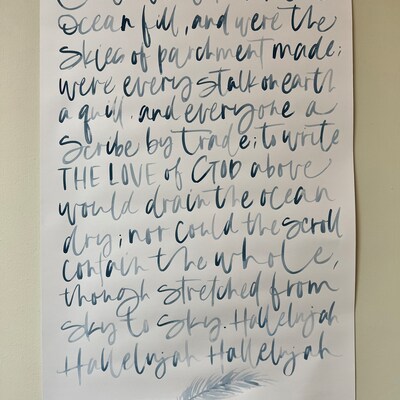 ocean fill, and were the
skies of parchment made;
were every stalk on earth
a quill, and everyone a
scribe by trade; to write
THE LOVE of GOD above
would drain the ocean
dry; nor could the scroll
contain the whole,
though stretched from
sky to sky. Hallelujah
Hallelujah Hallelujah